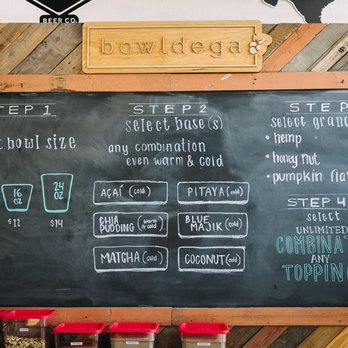 BEER CO.
bowldega
STEP 1
bowl size
16
OZ
$11
24
OZ
$14
STEP 2
select base(s)
any combination
even warm & cold
AÇAÍ (cold)
PITAYA (cold)
CHIA
PUDDING (warm
or cold)
BLUE
MAJIK (cold)
MATCHA (cold)
COCONUT (cold)
STEP
select gran
• hemp
• honey nut
• pumpkin fla
STEP 4
select
UNLIMITED
COMBINAT
ANY
TOPPIN